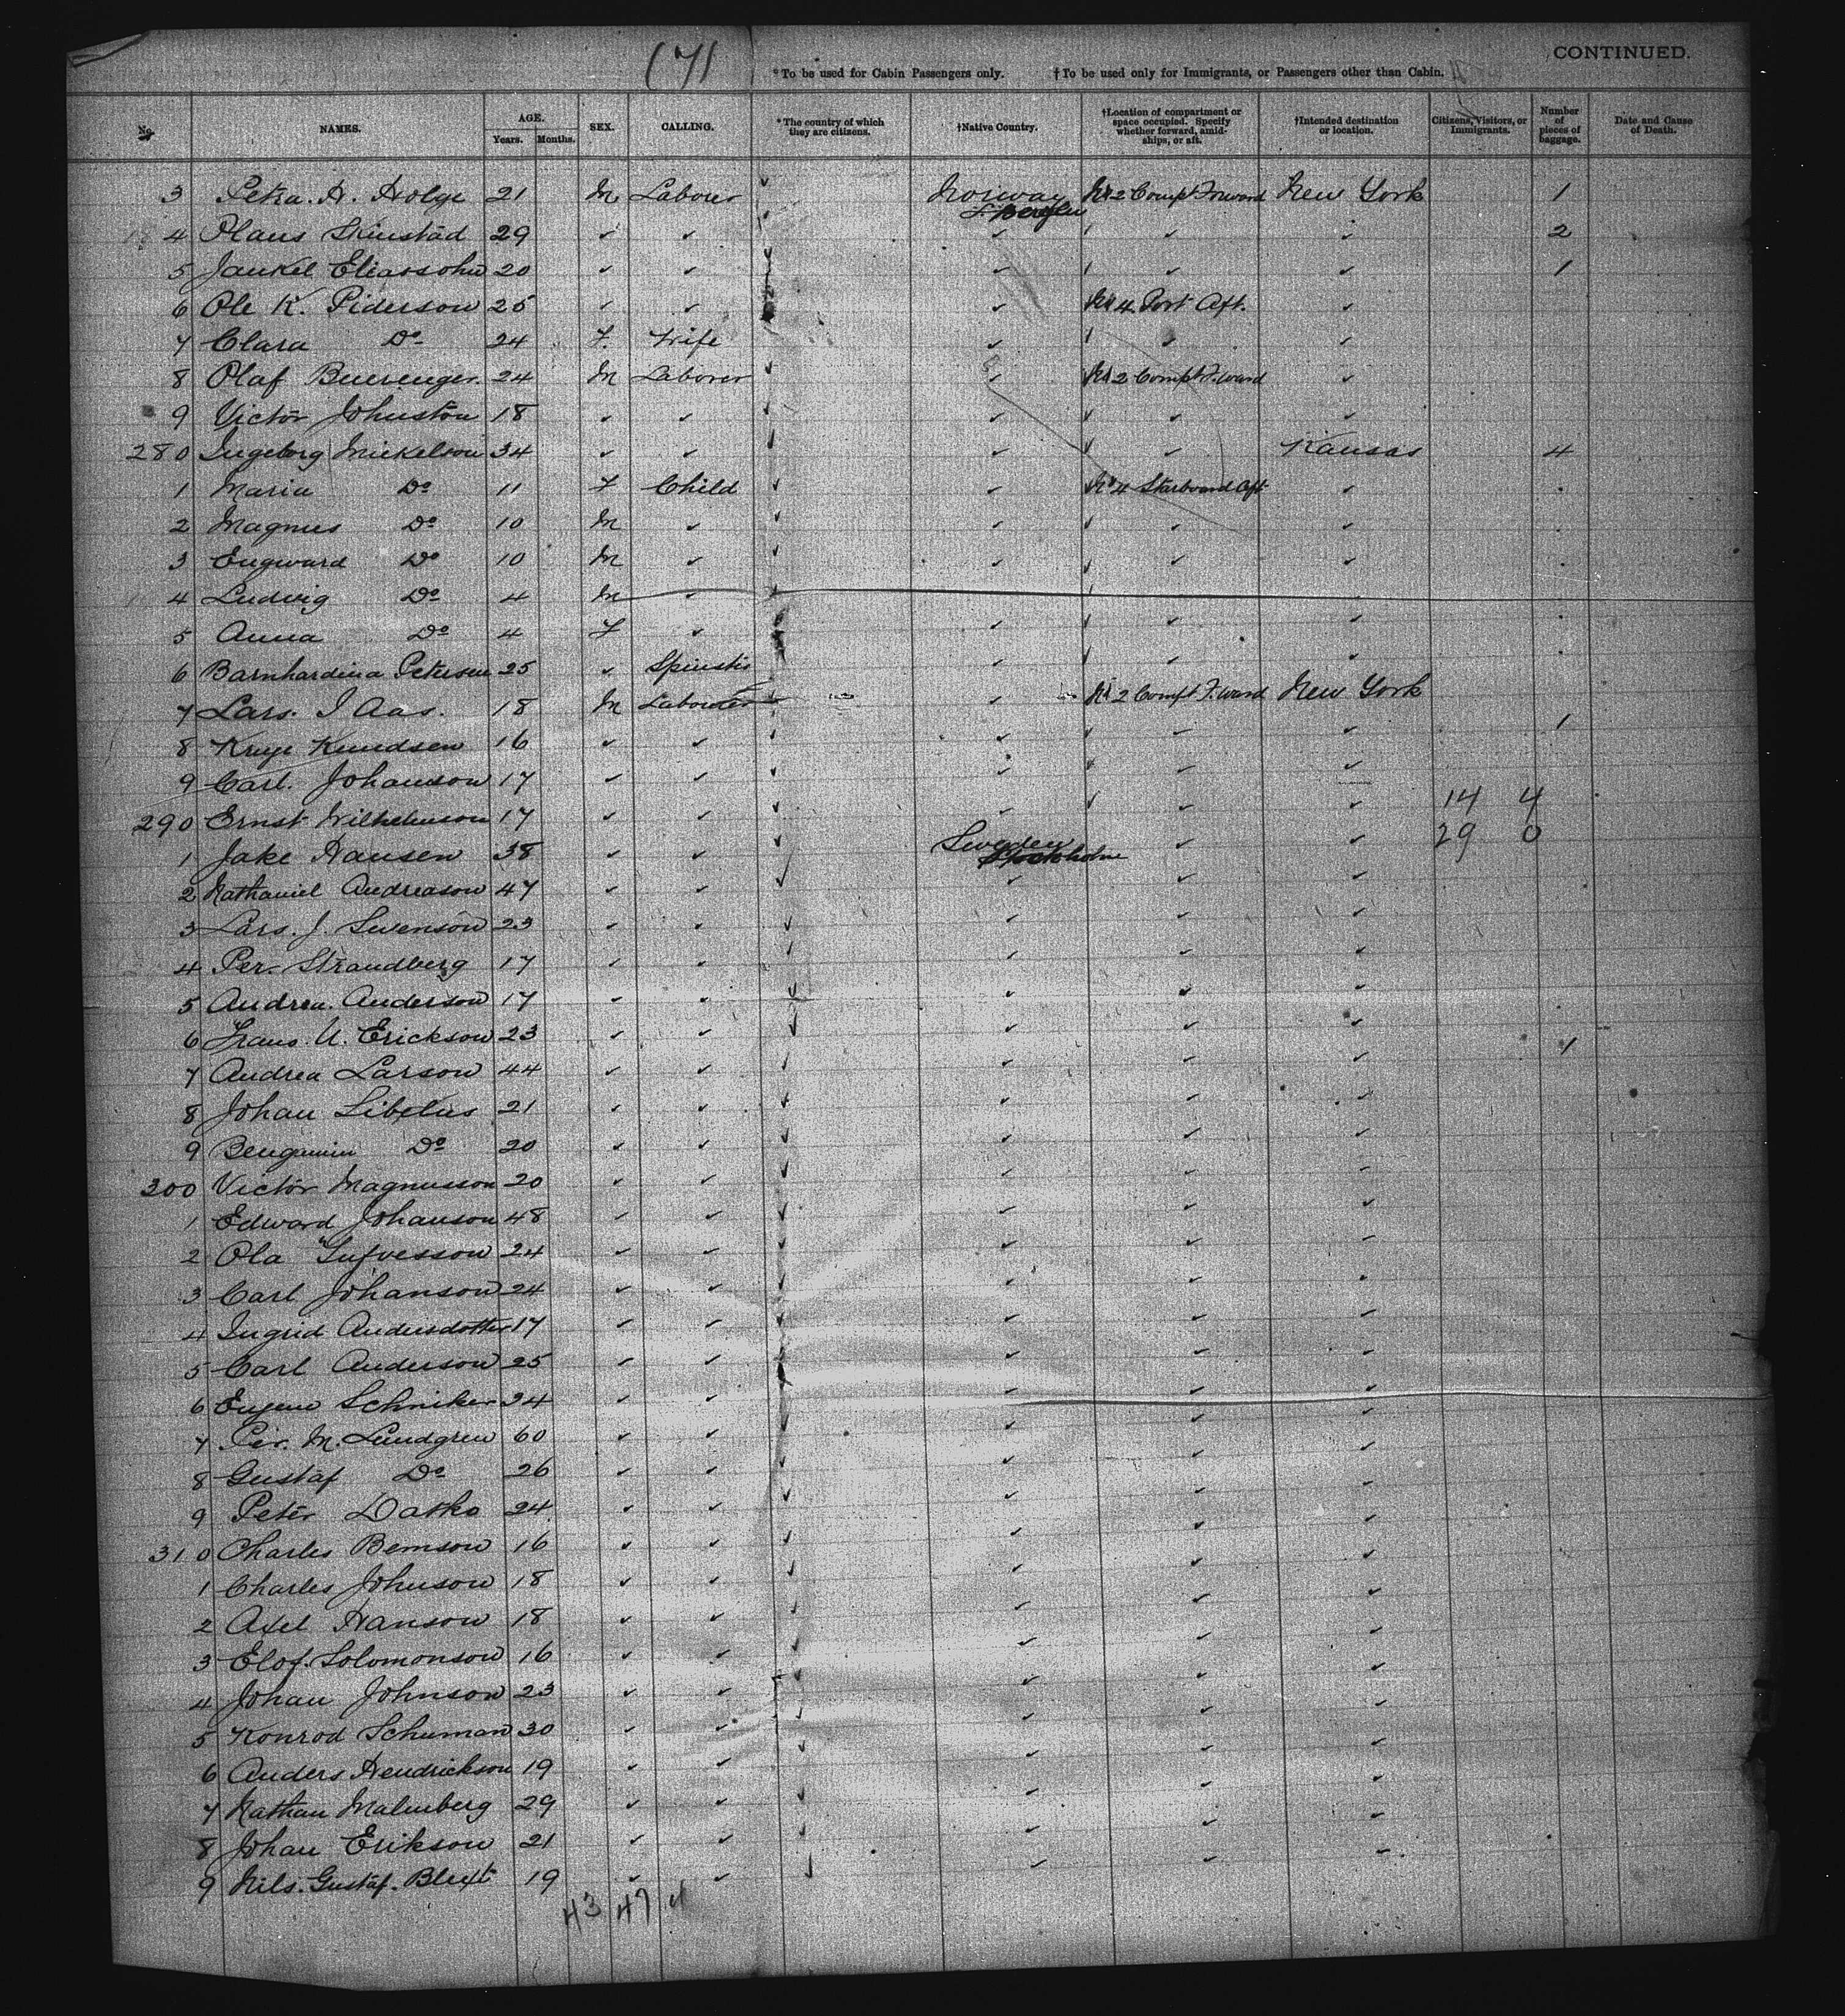 (7)
CONTINUED.
* To be used for Cabin Passengers only. † To be used only for Immigrants, or Passengers other than Cabin.
No. NAMES. AGE. Years. Months. SEX. CALLING. * The country of which they are citizens. † Native Country. † Location of compartment or space occupied. Specify whether forward, amidships, or aft. † Intended destination or location. Citizens, Visitors, or Immigrants. Number of pieces of baggage. Date and Cause of Death.
3 Petra. A. Holge 21 M Laborer Norway Nr 2 Compt Forward New York 1
4 Olaus Skinstad 29 ✓ ✓ ✓ ✓ ✓ 2
5 Jaukel Eliassohn 20 ✓ ✓ ✓ ✓ ✓ 1
6 Ole K. Piderson 25 ✓ ✓ ✓ Nr 4 Port Aft. ✓
7 Clara Do 24 F. Wife ✓ ✓ ✓
8 Olaf Buerenger. 24 M Laborer ✓ Nr 2 Compt F.ward ✓
9 Victor Johnston 18 ✓ ✓ ✓ ✓ ✓
280 Ingeborg Mickelson 34 ✓ ✓ ✓ ✓ Kansas 4
1 Maria Do 11 F Child ✓ Nr 4 Starboard Aft ✓
2 Magnus Do 10 M ✓ ✓ ✓ ✓
3 Engward Do 10 M ✓ ✓ ✓ ✓
4 Ludvig Do 4 M ✓
5 Anna Do 4 F ✓ ✓ ✓ ✓
6 Barnhardina Petersen 25 ✓ Spinstis ✓ ✓ ✓
7 Lars. I Aas. 18 M Laborer ✓ Nr 2 Compt F.ward New York
8 Knudsen 16 ✓ ✓ ✓ ✓ ✓ 1
9 Carl. Johanson 17 ✓ ✓ ✓ ✓ ✓
290 Ernst Wilhelmson 17 ✓ ✓ ✓ ✓ ✓ 14 4
1 Jake Hansen 38 ✓ ✓ Sweden Stockholm ✓ ✓ 29 0
2 Nathaniel Andreason 47 ✓ ✓ ✓ ✓ ✓
3 Lars. J. Swenson 23 ✓ ✓ ✓ ✓ ✓
4 Per. Strandberg 17 ✓ ✓ ✓ ✓ ✓
5 Andrea. Anderson 17 ✓ ✓ ✓ ✓ ✓
6 Frans. A. Erickson 23 ✓ ✓ ✓ ✓ ✓
7 Andrea Larson 44 ✓ ✓ ✓ ✓ ✓ 1
8 Johan Libelus 21 ✓ ✓ ✓ ✓ ✓
9 Bengamin Do 20 ✓ ✓ ✓ ✓ ✓
300 Victor Magnusson 20 ✓ ✓ ✓ ✓ ✓
1 Edward Johanson 48 ✓ ✓ ✓ ✓ ✓
2 Ola Gufvesson 24 ✓ ✓ ✓ ✓ ✓
3 Carl Johanson 24 ✓ ✓ ✓ ✓ ✓
4 Ingrid Andersdotter 17 ✓ ✓ ✓ ✓ ✓
5 Carl Anderson 25 ✓ ✓ ✓ ✓ ✓
6 Eugene Schniker 24 ✓ ✓ ✓ ✓ ✓
7 Per. M. Lundgren 60 ✓ ✓ ✓ ✓ ✓
8 Gustaf Do 26 ✓ ✓ ✓ ✓ ✓
9 Peter Datko 24 ✓ ✓ ✓ ✓ ✓
310 Charles Bemson 16 ✓ ✓ ✓ ✓ ✓
1 Charles Johnson 18 ✓ ✓ ✓ ✓ ✓
2 Axel Hanson 18 ✓ ✓ ✓ ✓ ✓
3 Elof. Solomonson 16 ✓ ✓ ✓ ✓ ✓
4 Johan Johnson 23 ✓ ✓ ✓ ✓ ✓
5 Konrod Schuman 30 ✓ ✓ ✓ ✓ ✓
6 Anders Hendrickson 19 ✓ ✓ ✓ ✓ ✓
7 Nathan Malmberg 29 ✓ ✓ ✓ ✓ ✓
8 Johan Erikson 21 ✓ ✓ ✓ ✓ ✓
9 Nils. Gustaf. Blixt 19 ✓ ✓ ✓ ✓ ✓
43 47 4